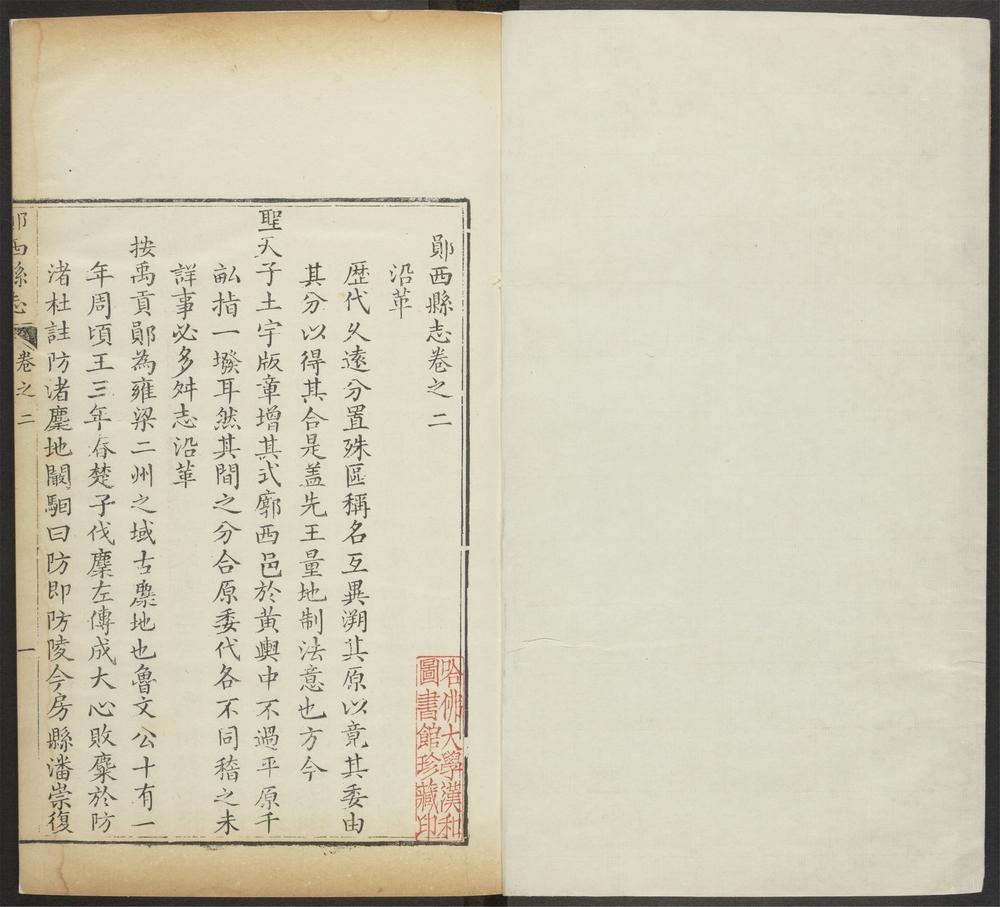 鄖西縣志卷之二
沿革
歷代久遠分置殊區稱名互異溯其原以竟其委由
其分以得其合是盖先王量地制法意也方今
聖天子土宇版章增其式廓西邑於黃輿中不過平原千
畆指一墢耳然其間之分合原委代各不同稽之未
詳事必多舛志沿革
按禹貢鄖為雍梁二州之域古麇地也魯文公十有一
年周頃王三年春楚子伐麇左傳成大心敗麇於防
渚杜註防渚麇地闞駰曰防即防陵今房縣潘崇復
鄖西縣志
卷之二
一
哈佛大學漢和
圖書館珍藏印